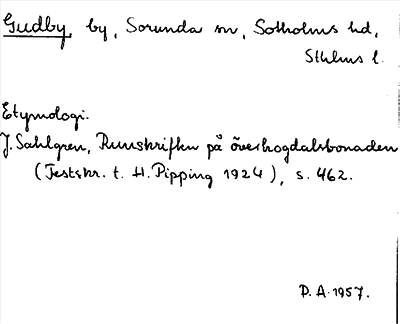 Gudby, by, Sorunda sn, Sotholms hd,
Sthlms l.
Etymologi.
J. Sahlgren, Runskriften på överhogdalsbonaden
(Festskr. t. H. Pipping 1924), s. 462.
P. A. 1957.